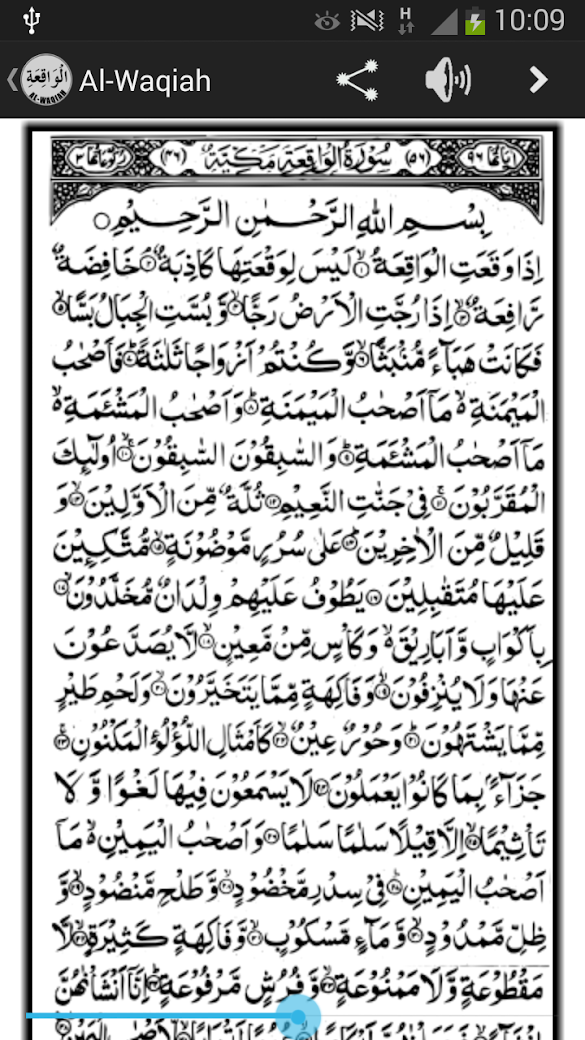 H 10:09
الْوَاقِعَة AL-WAQIAH Al-Waqiah
اٰيَاتُهَا ٩٦ (٥٦) سُوْرَةُ الْوَاقِعَةِ مَكِّيَّةٌ (٤٦) رُكُوْعَاتُهَا ٣
بِسْمِ اللهِ الرَّحْمٰنِ الرَّحِيْمِ
اِذَا وَقَعَتِ الْوَاقِعَةُ ۙ﴿١﴾ لَيْسَ لِوَقْعَتِهَا كَاذِبَةٌ ۘ﴿٢﴾ خَافِضَةٌ
رَّافِعَةٌ ۙ﴿٣﴾ اِذَا رُجَّتِ الْاَرْضُ رَجًّا ۙ﴿٤﴾ وَّ بُسَّتِ الْجِبَالُ بَسًّا ۙ﴿٥﴾
فَكَانَتْ هَبَآءً مُّنْۢبَثًّا ۙ﴿٦﴾ وَّ كُنْتُمْ اَزْوَاجًا ثَلٰثَةً ؕ﴿٧﴾ فَاَصْحٰبُ
الْمَيْمَنَةِ ۙ۬ مَاۤ اَصْحٰبُ الْمَيْمَنَةِ ؕ﴿٨﴾ وَ اَصْحٰبُ الْمَشْئَمَةِ ۙ۬
مَاۤ اَصْحٰبُ الْمَشْئَمَةِ ؕ﴿٩﴾ وَ السّٰبِقُوْنَ السّٰبِقُوْنَ ۚۙ﴿١٠﴾ اُولٰٓئِكَ
الْمُقَرَّبُوْنَ ۚ﴿١١﴾ فِيْ جَنّٰتِ النَّعِيْمِ ﴿١٢﴾ ثُلَّةٌ مِّنَ الْاَوَّلِيْنَ ۙ﴿١٣﴾ وَ
قَلِيْلٌ مِّنَ الْاٰخِرِيْنَ ؕ﴿١٤﴾ عَلٰى سُرُرٍ مَّوْضُوْنَةٍ ۙ﴿١٥﴾ مُّتَّكِـِٕيْنَ
عَلَيْهَا مُتَقٰبِلِيْنَ ﴿١٦﴾ يَطُوْفُ عَلَيْهِمْ وِلْدَانٌ مُّخَلَّدُوْنَ ۙ﴿١٧﴾
بِاَكْوَابٍ وَّ اَبَارِيْقَ ۙ۬ وَ كَاْسٍ مِّنْ مَّعِيْنٍ ۙ﴿١٨﴾ لَّا يُصَدَّعُوْنَ
عَنْهَا وَ لَا يُنْزِفُوْنَ ۙ﴿١٩﴾ وَ فَاكِهَةٍ مِّمَّا يَتَخَيَّرُوْنَ ۙ﴿٢٠﴾ وَ لَحْمِ طَيْرٍ
مِّمَّا يَشْتَهُوْنَ ؕ﴿٢١﴾ وَ حُوْرٌ عِيْنٌ ۙ﴿٢٢﴾ كَاَمْثَالِ اللُّؤْلُؤِ الْمَكْنُوْنِ ۚ﴿٢٣﴾
جَزَآءًۢ بِمَا كَانُوْا يَعْمَلُوْنَ ﴿٢٤﴾ لَا يَسْمَعُوْنَ فِيْهَا لَغْوًا وَّ لَا
تَاْثِيْمًا ۙ﴿٢٥﴾ اِلَّا قِيْلًا سَلٰمًا سَلٰمًا ﴿٢٦﴾ وَ اَصْحٰبُ الْيَمِيْنِ ۙ۬ مَاۤ
اَصْحٰبُ الْيَمِيْنِ ؕ﴿٢٧﴾ فِيْ سِدْرٍ مَّخْضُوْدٍ ۙ﴿٢٨﴾ وَّ طَلْحٍ مَّنْضُوْدٍ ۙ﴿٢٩﴾ وَّ
ظِلٍّ مَّمْدُوْدٍ ۙ﴿٣٠﴾ وَّ مَآءٍ مَّسْكُوْبٍ ۙ﴿٣١﴾ وَّ فَاكِهَةٍ كَثِيْرَةٍ ۙ﴿٣٢﴾ لَّا
مَقْطُوْعَةٍ وَّ لَا مَمْنُوْعَةٍ ۙ﴿٣٣﴾ وَّ فُرُشٍ مَّرْفُوْعَةٍ ؕ﴿٣٤﴾ اِنَّاۤ اَنْشَاْنٰهُنَّ